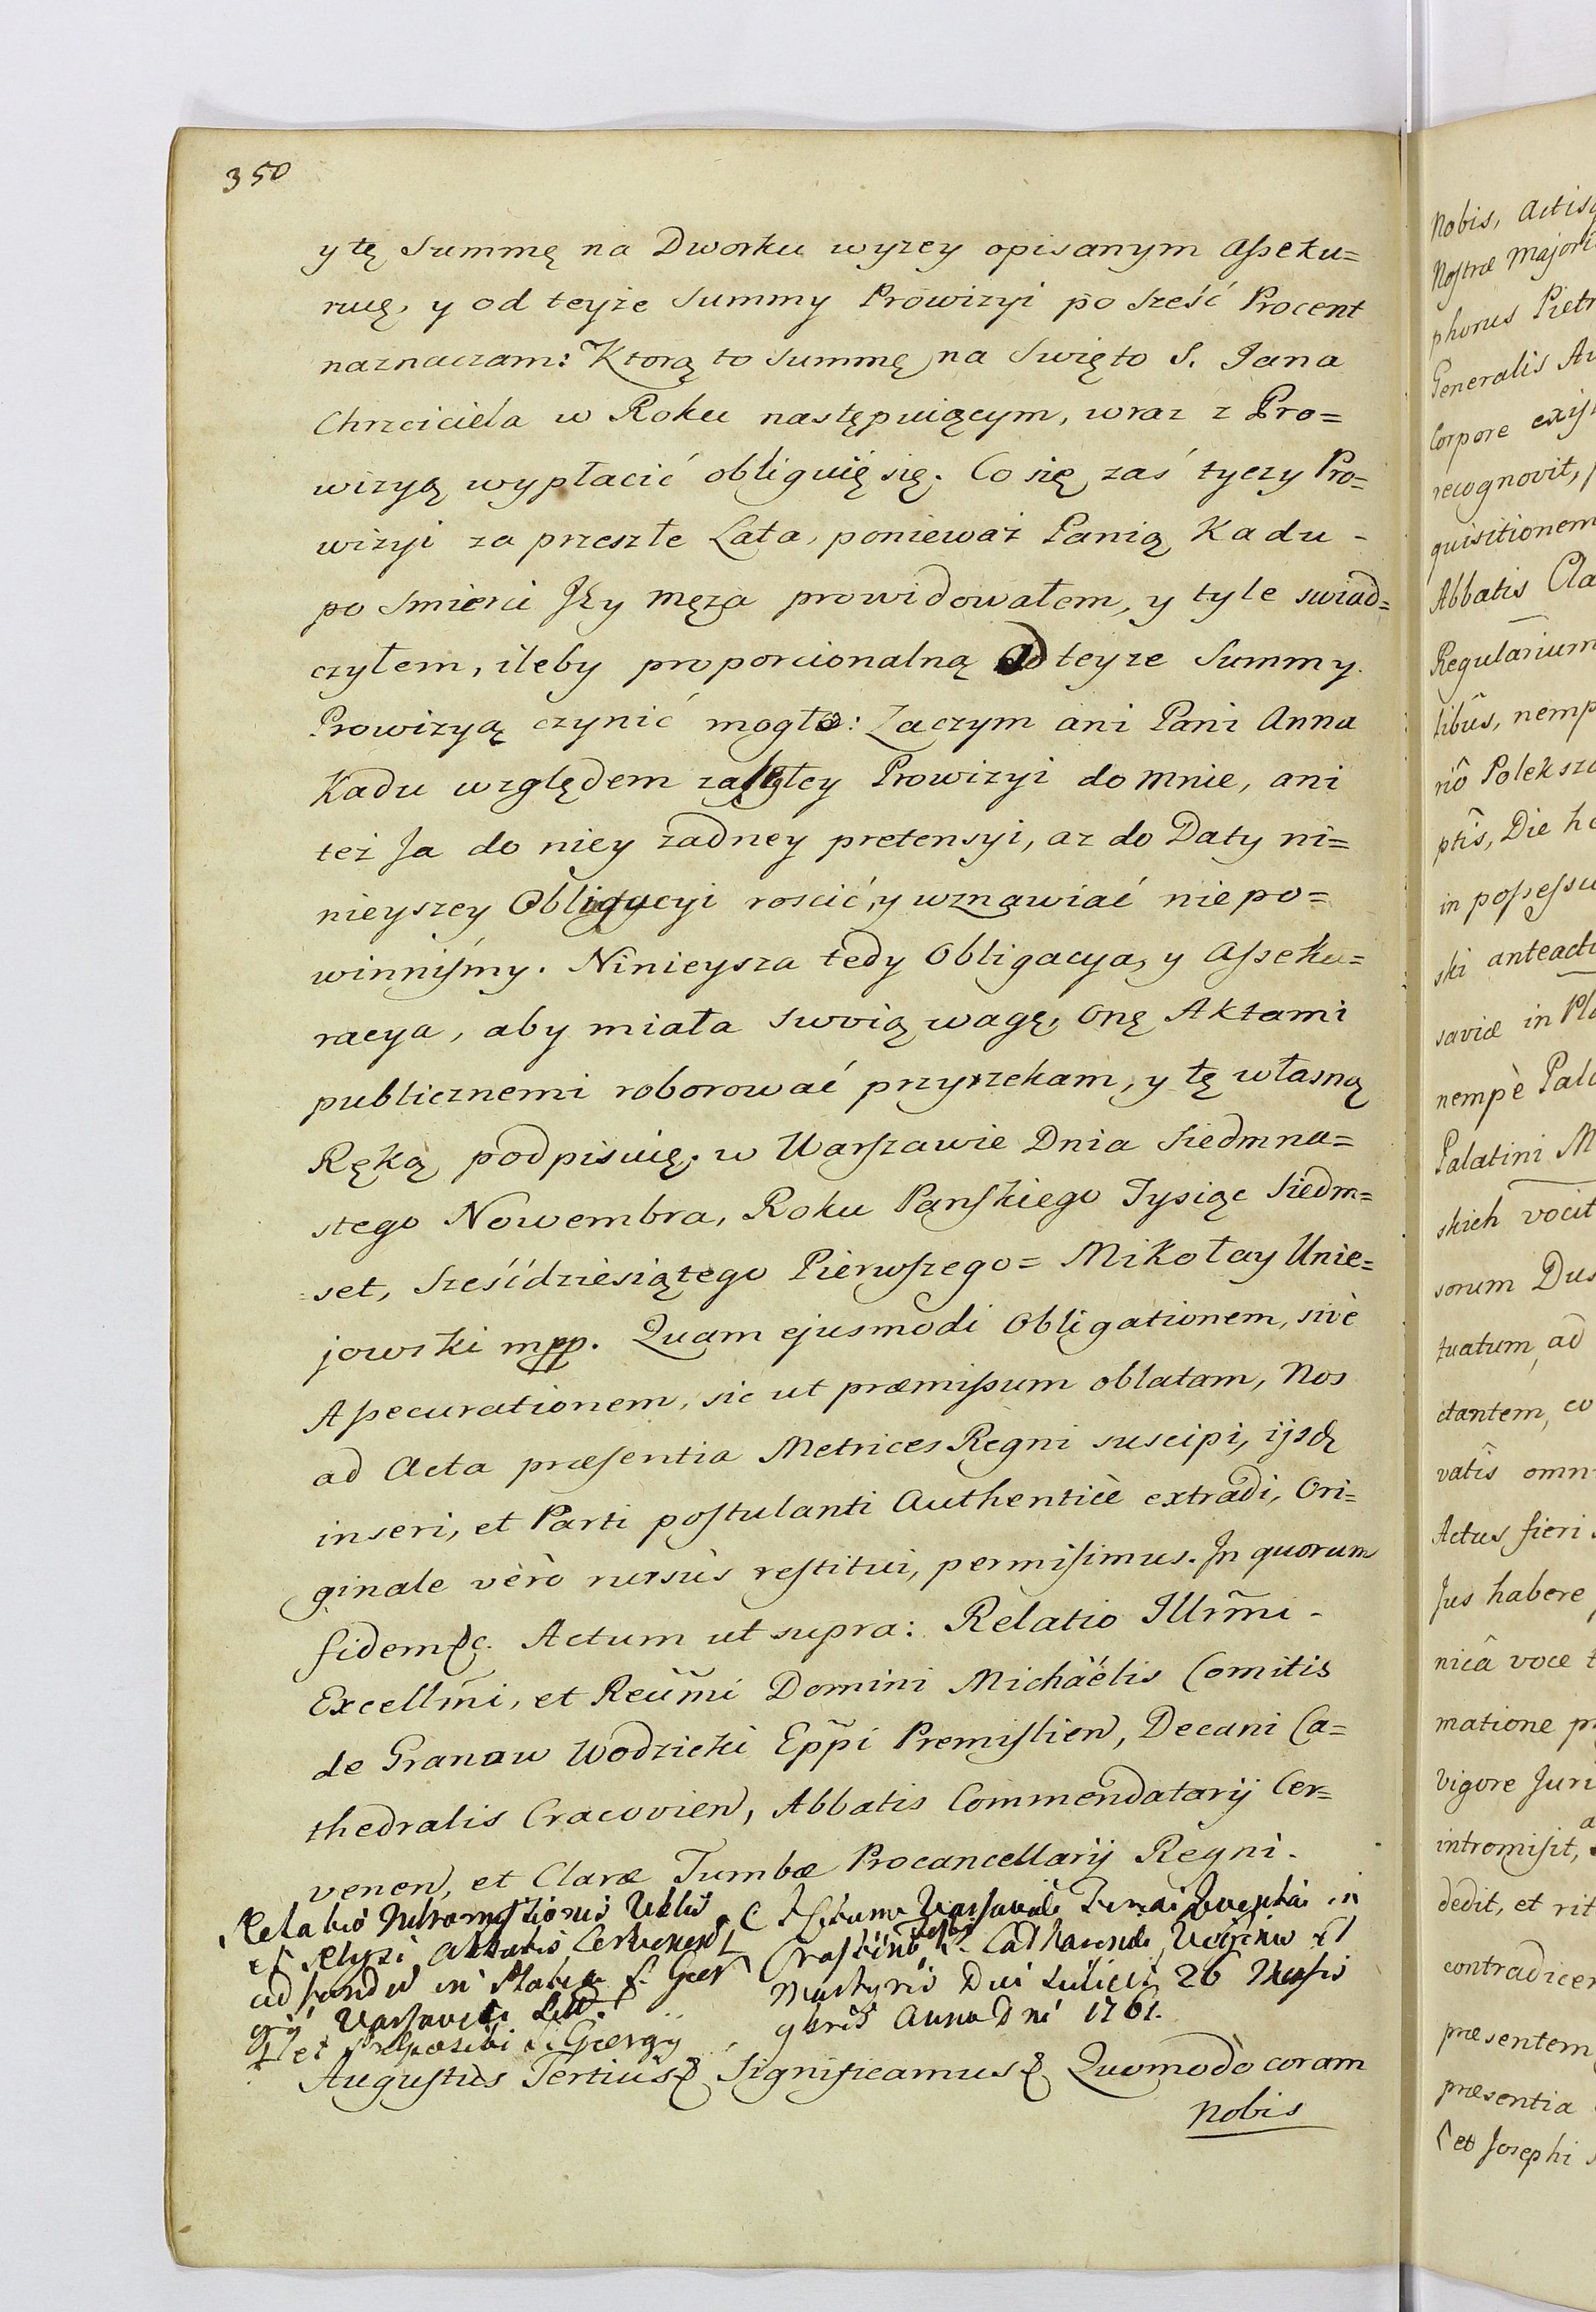 350
y tę Summę na Dworku wyzey opisanym asseku=
ruię, y od teyże Summy Prowizyi po sześć Procent
naznaczam: Ktorą to Summę na Swięto S. Jana
Chrzciciela w Roku następuiącym, wraz z Pro=
wizyą wypłacić obliguię się. Co się zaś tyczy Pro=
wizyi za przeszłe Lata, ponieważ Panią Kadu -
po Smierci Jey męża prowidowałem, y tyle swiad=
czyłem, ileby proporcionalną od teyze Summy
Prowizyą czynić mogło: Zaczym ani Pani Anna
Kadu względem zaległey Prowizyi do mnie, ani
też Ja do niey żadney pretensyi, az do Daty ni=
nieyszey Obligacyi roscić, y wznawiać nie po=
winnismy. Ninieysza tedy Obligacya, y asseku=
racya, aby miała swoią wagę, onę Aktami
publicznemi roborować przyrzekam, y tę własną
Ręką podpisuię. w Warszawie Dnia Siedmna=
stego Nowembra, Roku Panskiego Tysiąc Siedm=
=set, Sześćdziesiątego Pierwszego = Mikołay Unie=
jowski mpp. Quam ejusmodi Obligationem, sivè
Assecurationem, sic ut præmissum oblatam, Nos
ad Acta præsentia Metrices Regni suscipi, ijsdq
inseri, et Parti postulanti Authenticè extradi, Ori=
ginale vèrò rursùs restitui, permisimus. In quorum
fidem &c. Actum ut supra: Relatio Illrm̃i -
Excellm̃i, et Reũmi Domini Michäélis Comitis
de Granow Wodzicki Epp̃i Premislien, Decani Ca=
thedralis Cracovien, Abbatis Commendatarij Cer=
venen, et Claræ Tumbæ Procancellarij Regni.
Relatio Intromissionis
Abbatis Cervenen
ad fundum in Platea S. Geor
gij Varsaviæ
et Præpositi S. Georgy
Actum Varsaviæ
Crastino festi S. Catharinæ Virginis et
Martyris Die scilicet 26 Mensis
9bris Anno Dni 1761.
Augustùs Tertius & Significamus & Quomodò coram
nobis
Nobis, Actisq
Nostræ Majori
phorus Pietr
Generalis Au
Corpore exis
recognovit,
quisitionem
Abbatis Cla
Regularium
libûs, nemp
riô Poleksz
ptîs, Die h
in possessu
ski anteact
saviæ in Pla
nempè Pala
Palatini M
skich vocit
sorum Dus
tuatum, ad
ctantem, co
vatîs omn
Actus fieri
Jus habere
nicâ voce t
matione p
vigore Juri
intromisit,
dedit, et rit
contradicen
præsentem
præsentia
et Josephi